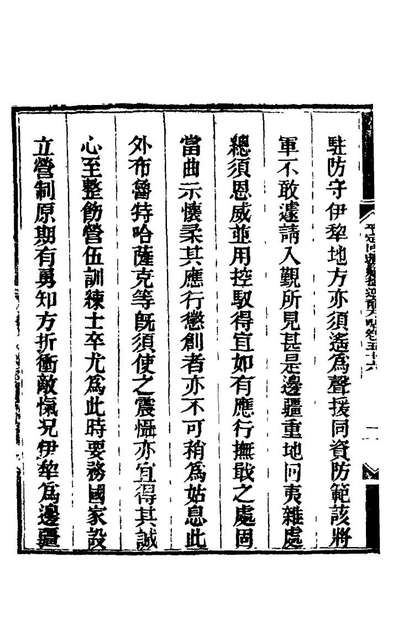 駐防守伊犂地方亦須遙爲聲援同資防範該將
軍不敢遽請入覲所見甚是邊疆重地回夷雜處
總須恩威並用控馭得宜如有應行撫戢之處固
當曲示懷柔其應行懲創者亦不可稍爲姑息此
外布魯特哈薩克等旣須使之震懾亦宜得其誠
心至整飭營伍訓練士卒尤爲此時要務國家設
立營制原期有勇知方折衝敵愾况伊犂爲邊疆